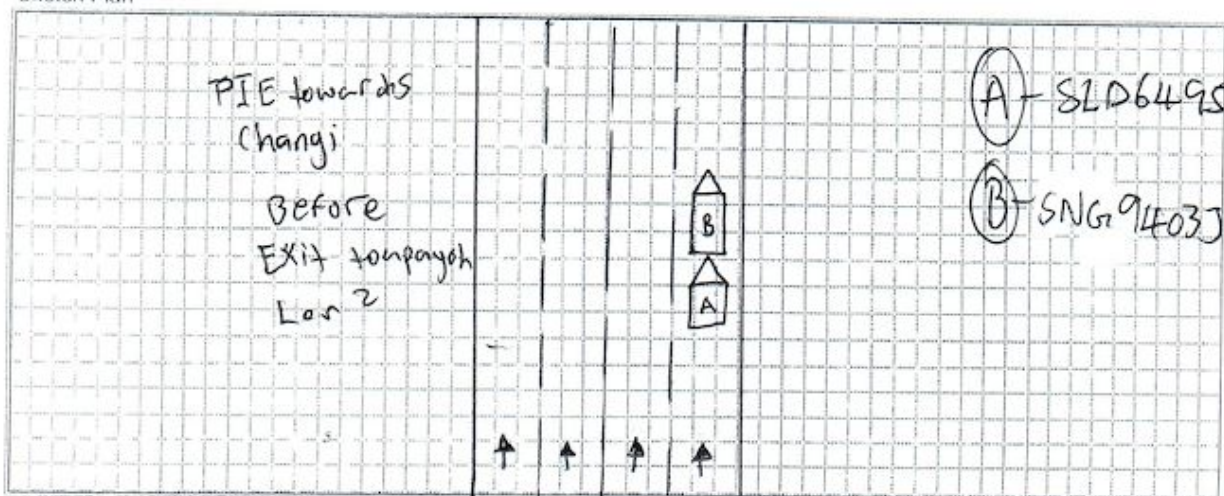 PIE towards
Changi
Before
Exit toapayoh
Lor 2
B
A
A - SLD649S
B - SNG9403J